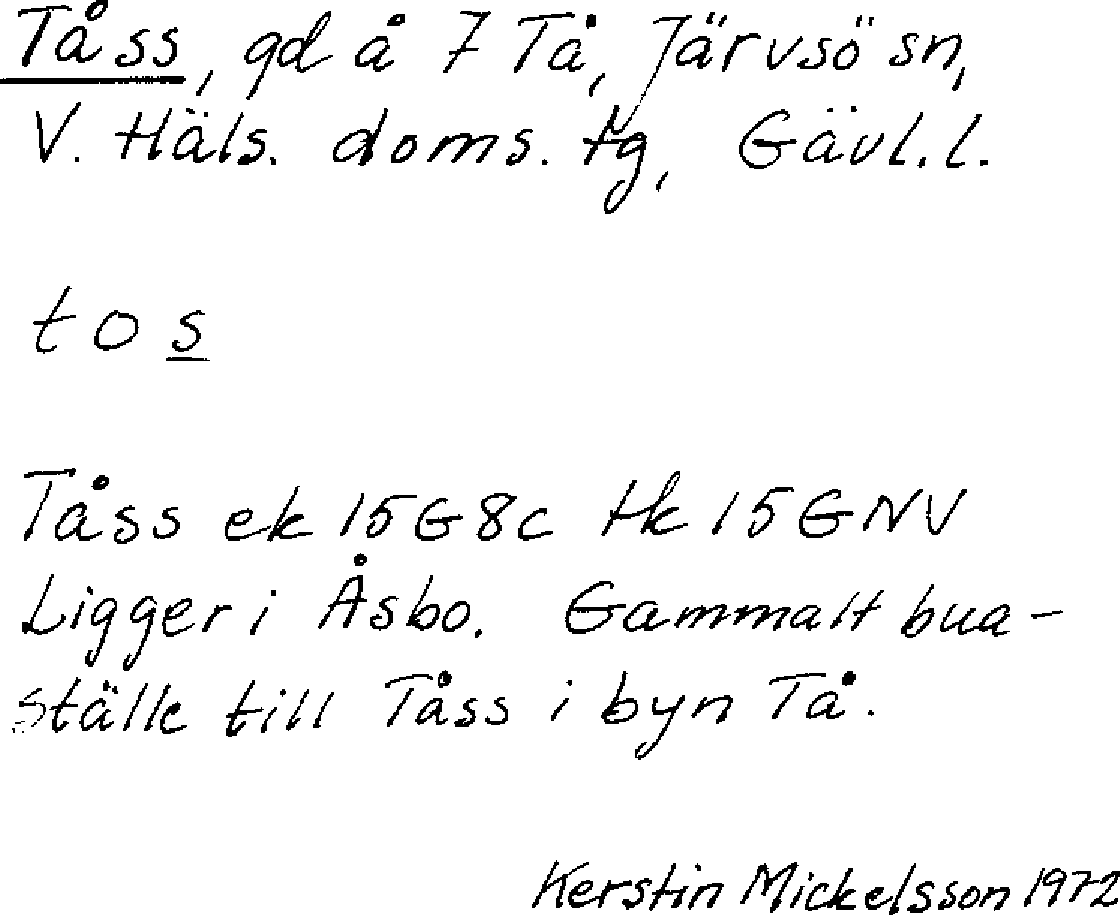 Tåss, gd å 7 Tå, Järvsö sn,
V. Häls. doms. tg, Gävl. l.
tos
Tåss ek 15G8c tk 15GNV
Ligger i Åsbo. Gammalt bua-
ställe till Tåss i byn Tå.
Kerstin Mickelsson 1972